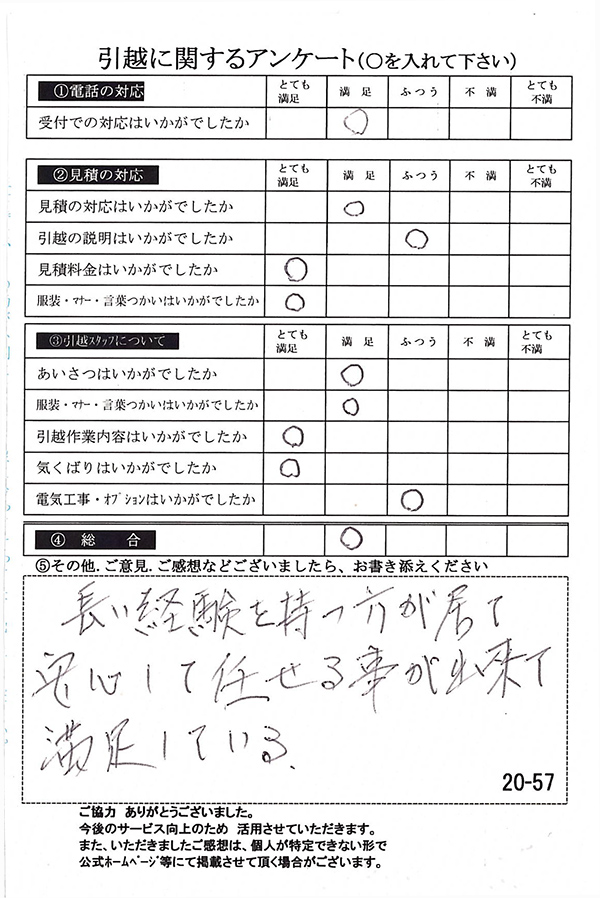 引越に関するアンケート(〇を入れて下さい)
①電話の対応 とても満足 満足 ふつう 不満 とても不満
受付での対応はいかがでしたか ○
②見積の対応 とても満足 満足 ふつう 不満 とても不満
見積の対応はいかがでしたか ○
引越の説明はいかがでしたか ○
見積料金はいかがでしたか ○
服装・マナー・言葉つかいはいかがでしたか ○
③引越スタッフについて とても満足 満足 ふつう 不満 とても不満
あいさつはいかがでしたか ○
服装・マナー・言葉つかいはいかがでしたか ○
引越作業内容はいかがでしたか ○
気くばりはいかがでしたか ○
電気工事・オプションはいかがでしたか ○
④ 総 合 ○
⑤その他.ご意見.ご感想などございましたら、お書き添えください
長い経験を持つ方が居て
安心して任せる事が出来て
満足している.
20-57
ご協力 ありがとうございました。
今後のサービス向上のため 活用させていただきます。
また、いただきましたご感想は、個人が特定できない形で
公式ホームページ等にて掲載させて頂く場合がございます。